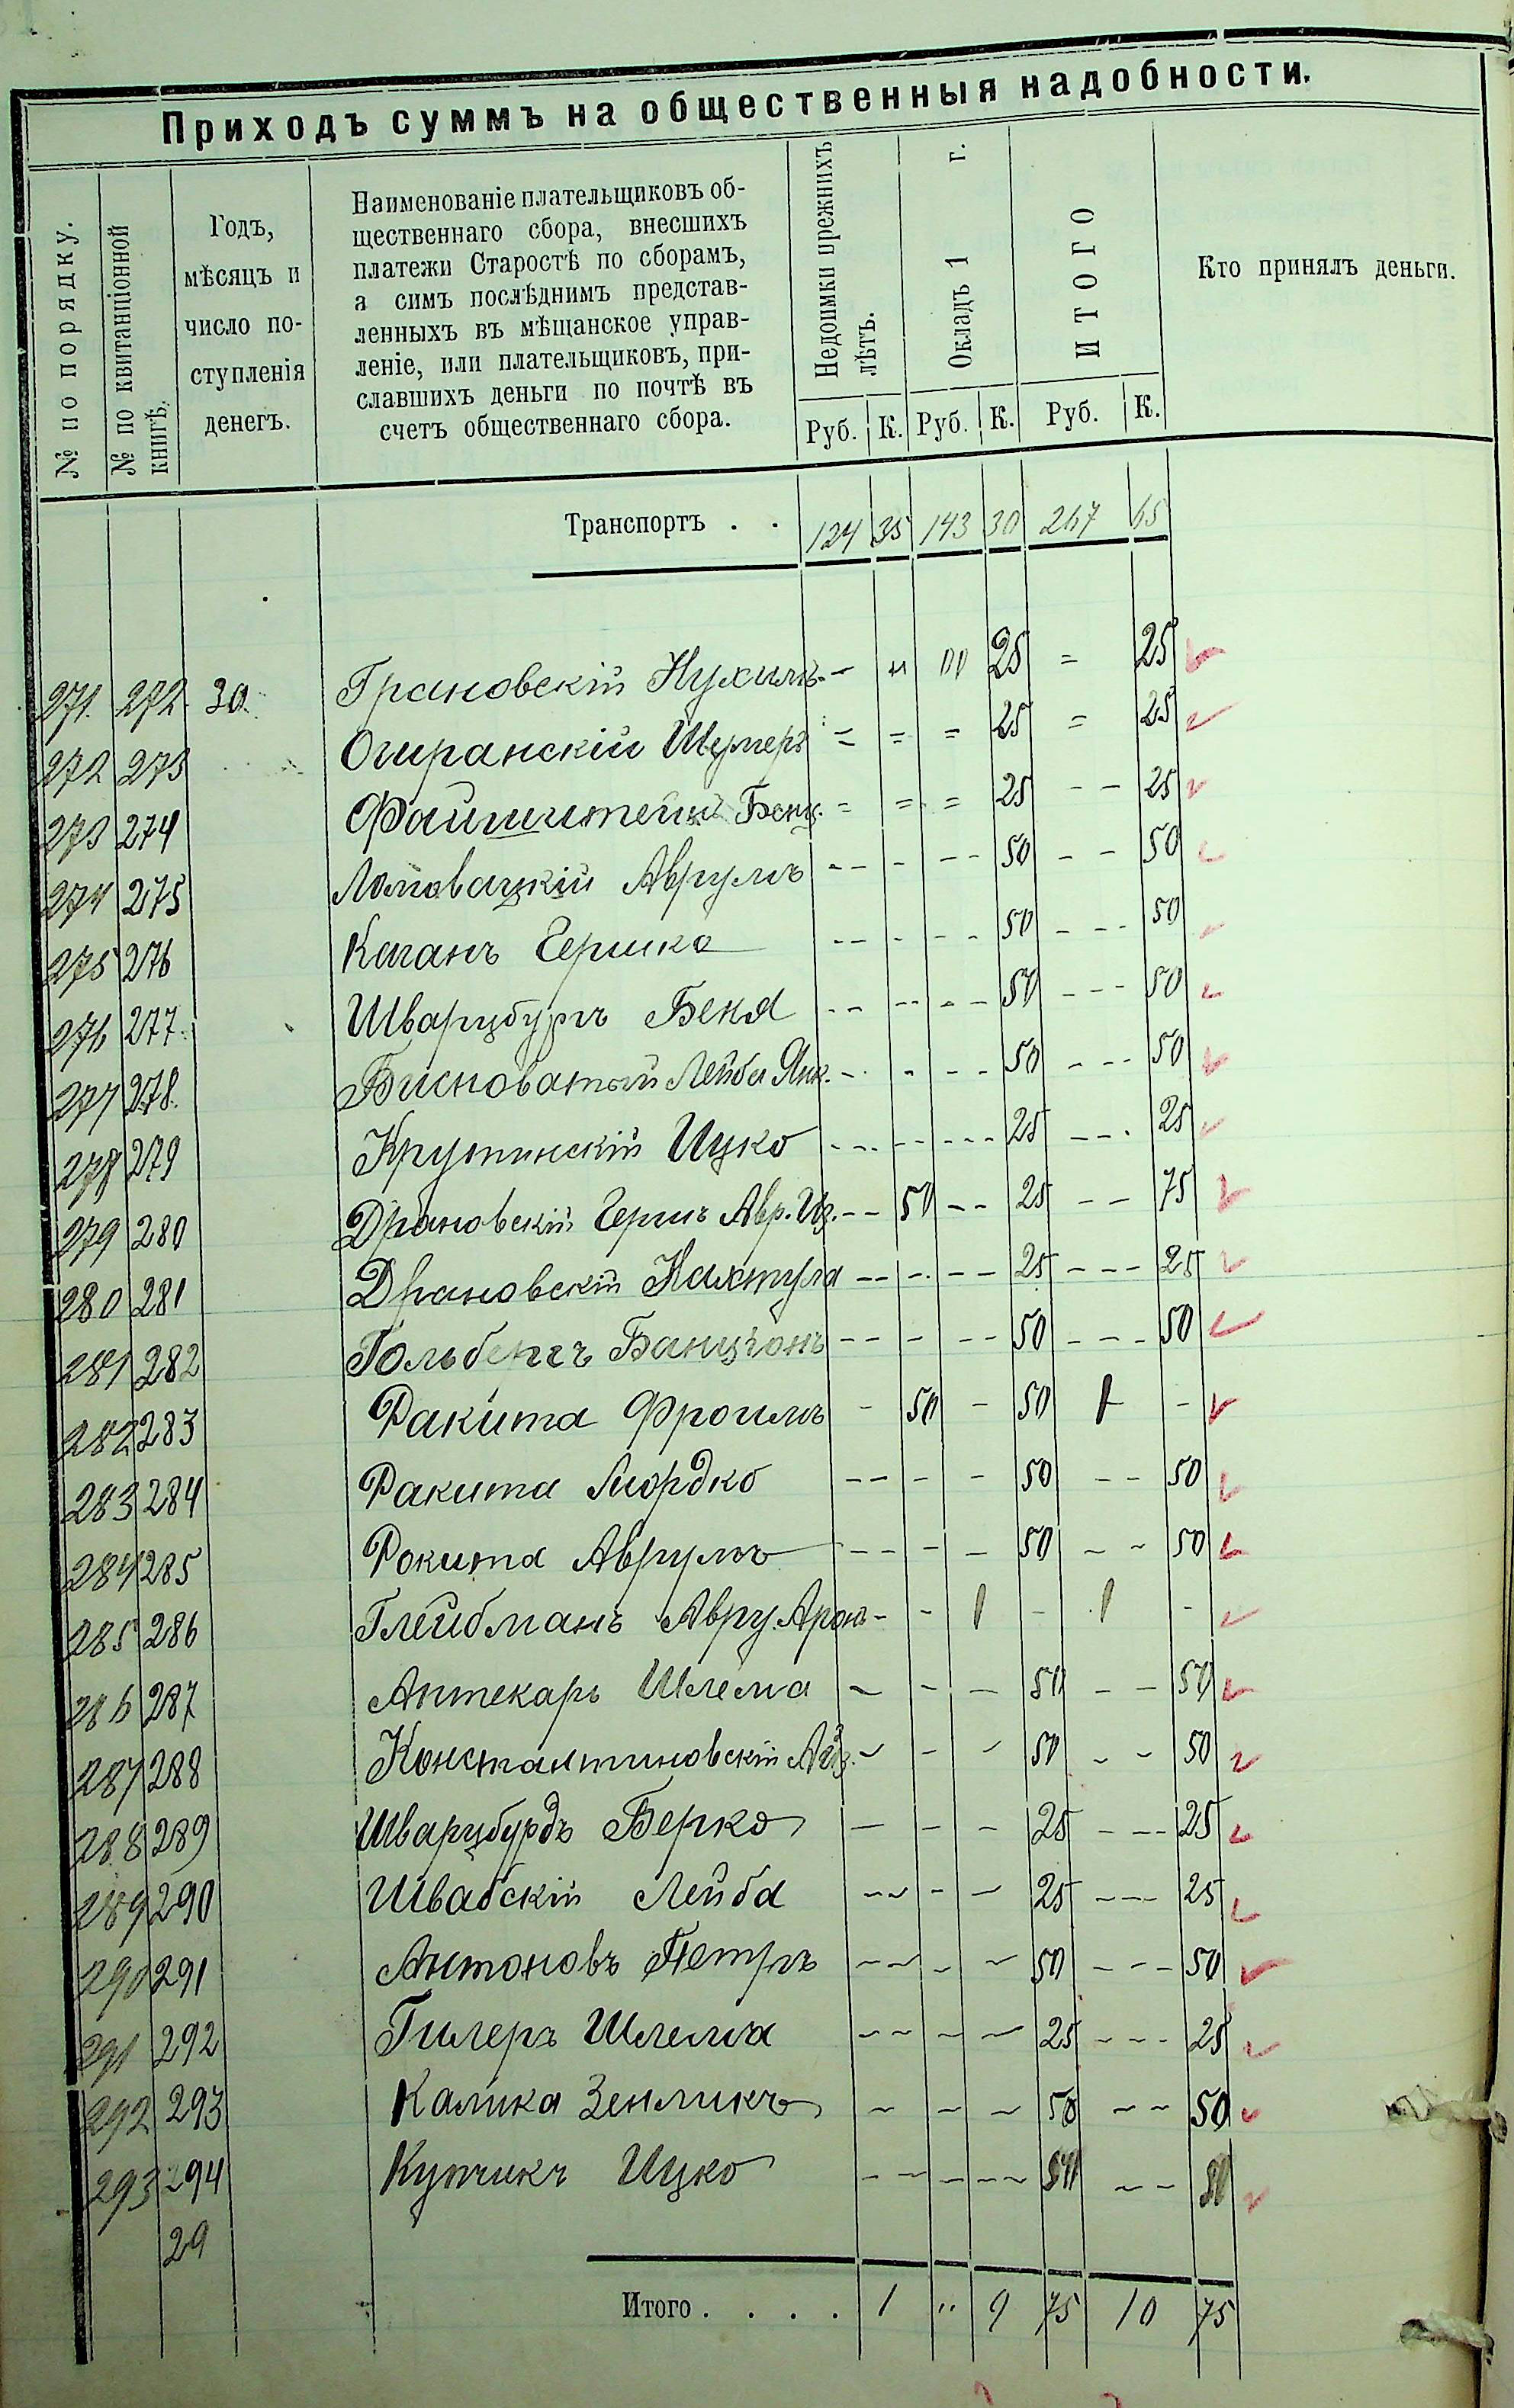 Приходъ суммъ на общественныя надобности.
№ по порядку.
№ по квитанціонной
книгѣ.
Годъ,
мѣсяцъ и
число по-
ступленія
денегъ.
Наименованіе плательщиковъ об-
щественнаго сбора, внесшихъ
платежи Старостѣ по сборамъ,
а симъ послѣднимъ представ-
ленныхъ въ мѣщанское управ-
леніе, или плательщиковъ, при-
славшихъ деньги по почтѣ въ
счетъ общественнаго сбора.
Недоимки прежнихъ
лѣтъ.
Окладъ 1 г.
ИТОГО
Кто принялъ деньги.
Руб. К. Руб. К. Руб. К.
Транспортъ . . 124 35 143 30 267 65
271 272 30 Грановскій Нухимъ - " "" 25 = 25
272 273 Шумеръ = = = 25 = 25
273 274 Файнштейнъ Бенц. = = = 25 - - 25
274 275 Аврумъ -- - -- 50 - - 50
275 276 Каганъ Гершко -- - -- 50 --- 50
276 277 Шварцбургъ -- -- -- 50 --- 50
277 278 Висноватый Лейба Янк. - - -- 50 --- 50
278 279 Крутинскій Ицко --- -- --- 25 --- 25
279 280 Драновскій Герш Авр.Иц. -- 50 -- 25 - - 75
280 281 Драновскій -- - -- 25 --- 25
281 282 Гольбергъ Банціонъ -- - -- 50 --- 50
282 283 Ракита Фроимъ - 50 - 50 1 -
283 284 Ракита Мордко -- - - 50 -- 50
284 285 Рокита Аврумъ -- - - 50 - - 50
285 286 Глейбманъ Авру. Арон - - 1 - 1 -
286 287 Аптекарь Шлема - - - 50 - - 50
287 288 Константиновскій - - - 50 - - 50
288 289 Шварцбурдъ Берко - - - 25 --- 25
289 290 Швабскій Лейба -- - - 25 --- 25
290 291 Антоновъ Петръ -- - - 50 --- 50
291 292 Гилеръ Шлема -- - - 25 --- 25
292 293 Калика Зенликъ - - - 50 -- 50
293 294 Купчикъ Ицко -- - -- 50 -- 50
29
Итого . . . . 1 " 9 75 10 75